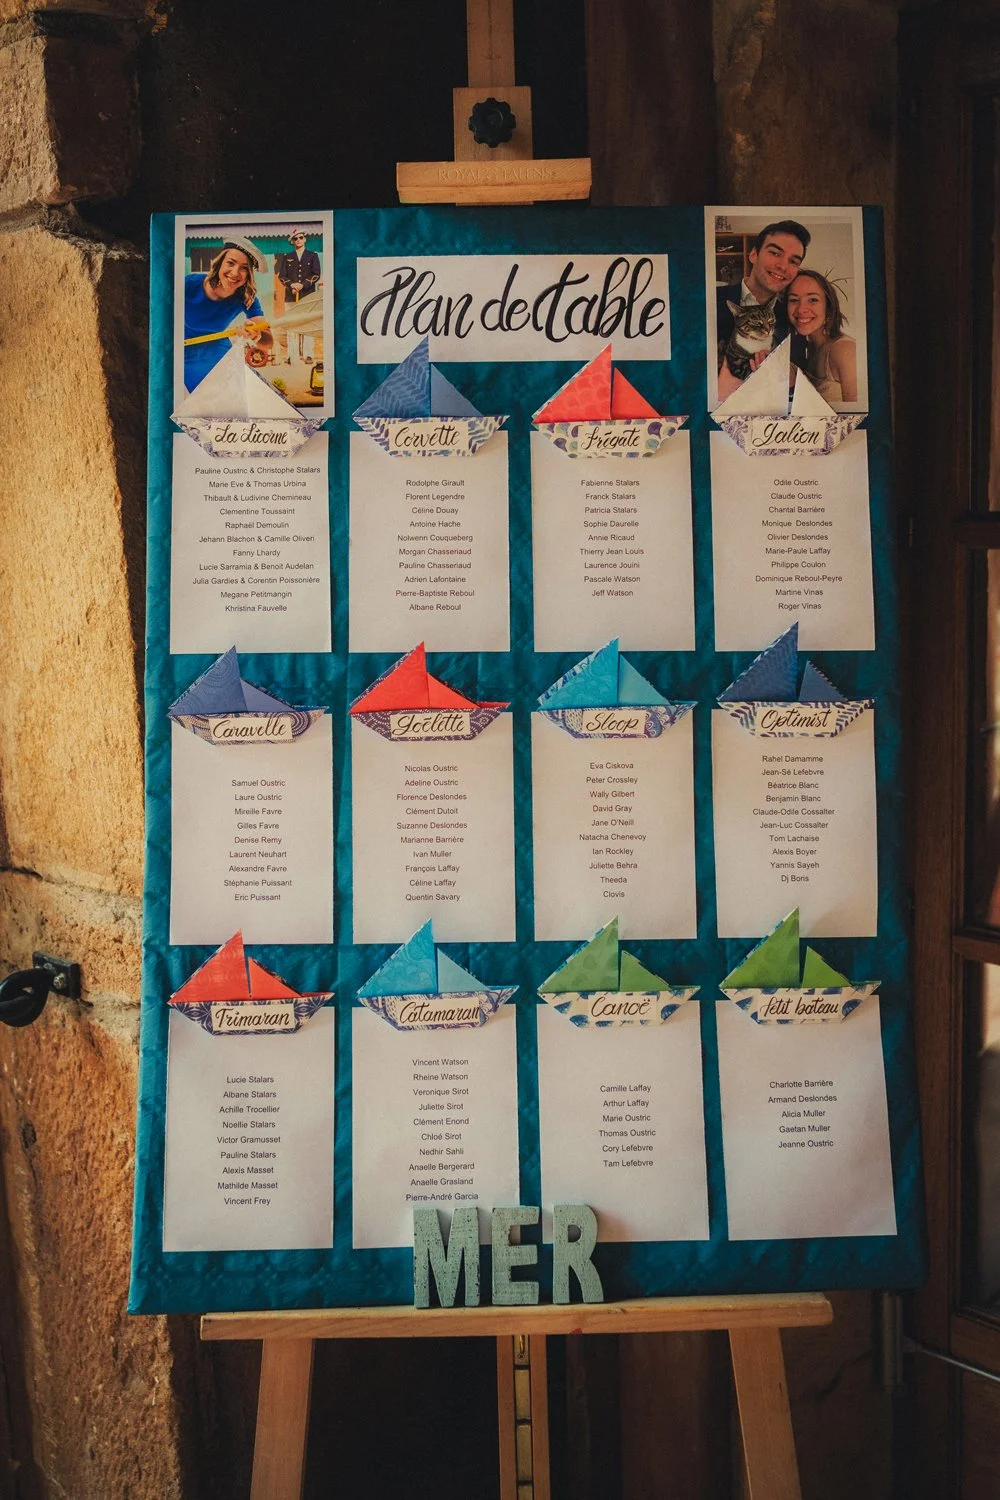 ROYAL TALENS
Plan de table
La Licorne
Pauline Oustric & Christophe Stalars
Marie Eve & Thomas Urbina
Thibault & Ludivine Chemineau
Clementine Toussaint
Raphaël Demoulin
Jehann Blachon & Camille Oliveri
Fanny Lhardy
Lucie Sarramia & Benoit Audelan
Julia Gardies & Corentin Poissonière
Megane Petitmangin
Khristina Fauvelle
Corvette
Rodolphe Girault
Florent Legendre
Céline Douay
Antoine Hache
Nolwenn Couqueberg
Morgan Chasseriaud
Pauline Chasseriaud
Adrien Lafontaine
Pierre-Baptiste Reboul
Albane Reboul
Frégate
Fabienne Stalars
Franck Stalars
Patricia Stalars
Sophie Daurelle
Annie Ricaud
Thierry Jean Louis
Laurence Jouini
Pascale Watson
Jeff Watson
Galion
Odile Oustric
Claude Oustric
Chantal Barrière
Monique Deslondes
Olivier Deslondes
Marie-Paule Laffay
Philippe Coulon
Dominique Reboul-Peyre
Martine Vinas
Roger Vinas
Caravelle
Samuel Oustric
Laure Oustric
Mireille Favre
Gilles Favre
Denise Remy
Laurent Neuhart
Alexandre Favre
Stéphanie Puissant
Eric Puissant
Goëlette
Nicolas Oustric
Adeline Oustric
Florence Deslondes
Clément Dutoit
Suzanne Deslondes
Marianne Barrière
Ivan Muller
François Laffay
Céline Laffay
Quentin Savary
Sloop
Eva Ciskova
Peter Crossley
Wally Gilbert
David Gray
Jane O'Neill
Natacha Chenevoy
Ian Rockley
Juliette Behra
Theeda
Clovis
Optimist
Rahel Damamme
Jean-Sé Lefebvre
Béatrice Blanc
Benjamin Blanc
Claude-Odile Cossalter
Jean-Luc Cossalter
Tom Lachaise
Alexis Boyer
Yannis Sayeh
Dj Boris
Trimaran
Lucie Stalars
Albane Stalars
Achille Trocellier
Noellie Stalars
Victor Gramusset
Pauline Stalars
Alexis Masset
Mathilde Masset
Vincent Frey
Catamaran
Vincent Watson
Rheine Watson
Veronique Sirot
Juliette Sirot
Clément Enond
Chloé Sirot
Nedhir Sahli
Anaelle Bergerard
Anaelle Grasland
Pierre-André Garcia
Canoë
Camille Laffay
Arthur Laffay
Marie Oustric
Thomas Oustric
Cory Lefebvre
Tam Lefebvre
Petit bateau
Charlotte Barrière
Armand Deslondes
Alicia Muller
Gaetan Muller
Jeanne Oustric
MER